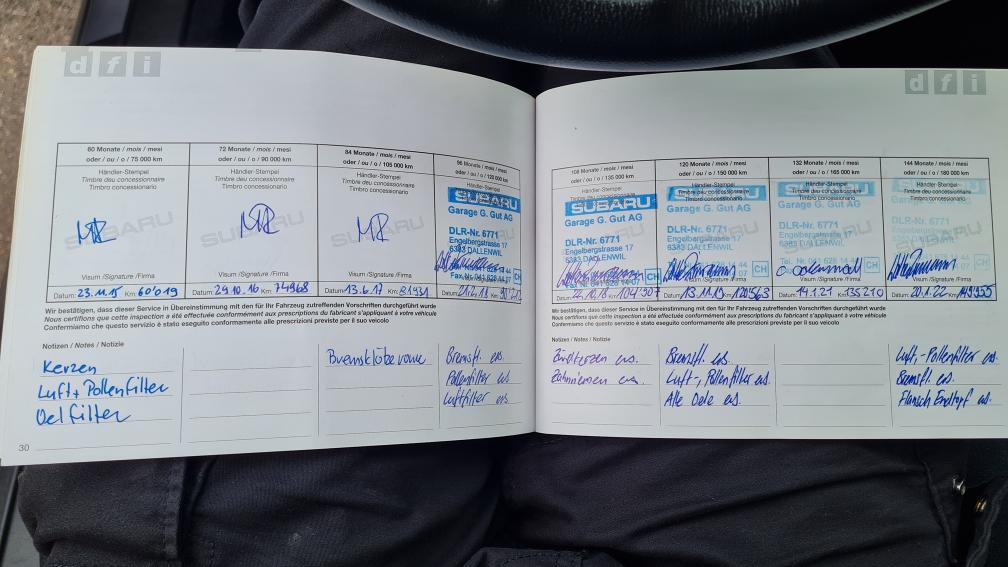 dfi
dfi
60 Monate / mois / mesi
oder / ou / o / 75 000 km
Händler-Stempel
Timbre du concessionnaire
Timbro concessionario
SUBARU
Visum /Signature /Firma
Datum: 23.11.15 Km: 60'019
72 Monate / mois / mesi
oder / ou / o / 90 000 km
Händler-Stempel
Timbre du concessionnaire
Timbro concessionario
SUBARU
Visum /Signature /Firma
Datum: 29.10.16 Km: 74968
84 Monate / mois / mesi
oder / ou / o / 105 000 km
Händler-Stempel
Timbre du concessionnaire
Timbro concessionario
SUBARU
Visum /Signature /Firma
Datum: 13.6.17 Km: 81931
96 Monate / mois / mesi
oder / ou / o / 120 000 km
Händler-Stempel
SUBARU
Garage G. Gut AG
DLR-Nr. 6771
Engelbergstrasse 17
6383 DALLENWIL
Wir bestätigen, dass dieser Service in Übereinstimmung mit den für Ihr Fahrzeug zutreffenden Vorschriften durchgeführt wurde
Nous certifions que cette inspection a été effectuée conformément aux prescriptions du fabricant s'appliquant à votre véhicule
Confermiamo che questo servizio è stato eseguito conformemente alle prescrizioni previste per il suo veicolo
Notizen / Notes / Notizie
Kerzen
Luft + Pollenfilter
Oelfilter
Bremsfl. ers.
Pollenfilter ers.
Luftfilter ers.
30
108 Monate / mois / mesi
oder / ou / o / 135 000 km
Händler-Stempel
SUBARU
Garage G. Gut AG
DLR-Nr. 6771
Engelbergstrasse 17
6383 DALLENWIL
Visum /Signature /Firma
CH
Km: 104'907
120 Monate / mois / mesi
oder / ou / o / 150 000 km
Händler-Stempel
Timbre du concessionnaire
Timbro concessionario
SUBARU
Garage G. Gut AG
DLR-Nr. 6771
Engelbergstrasse 17
6383 DALLENWIL
Visum /Signature /Firma
CH
Datum: 13.11.19 Km: 120563
132 Monate / mois / mesi
oder / ou / o / 165 000 km
Händler-Stempel
Timbre du concessionnaire
Timbro concessionario
Garage G. Gut AG
DLR-Nr. 6771
Engelbergstrasse 17
6383 DALLENWIL
Visum /Signature /Firma
CH
Datum: 14.1.21 Km: 135210
144 Monate / mois / mesi
oder / ou / o / 180 000 km
Händler-Stempel
Timbre du concessionnaire
Timbro concessionario
Visum /Signature /Firma
CH
Datum: 20.1.22 Km: 149955
Wir bestätigen, dass dieser Service in Übereinstimmung mit den für Ihr Fahrzeug zutreffenden Vorschriften durchgeführt wurde
Nous certifions que cette inspection a été effectuée conformément aux prescriptions du fabricant s'appliquant à votre véhicule
Confermiamo che questo servizio è stato eseguito conformemente alle prescrizioni previste per il suo veicolo
Notizen / Notes / Notizie
Zündkerzen ers.
Zahnriemen ers.
Bremsfl. ers.
Luft-, Pollenfilter ers.
Alle Oele ers.
Luft,- Pollenfilter ers.
Bremsfl. ers.
Flansch Endtopf ers.